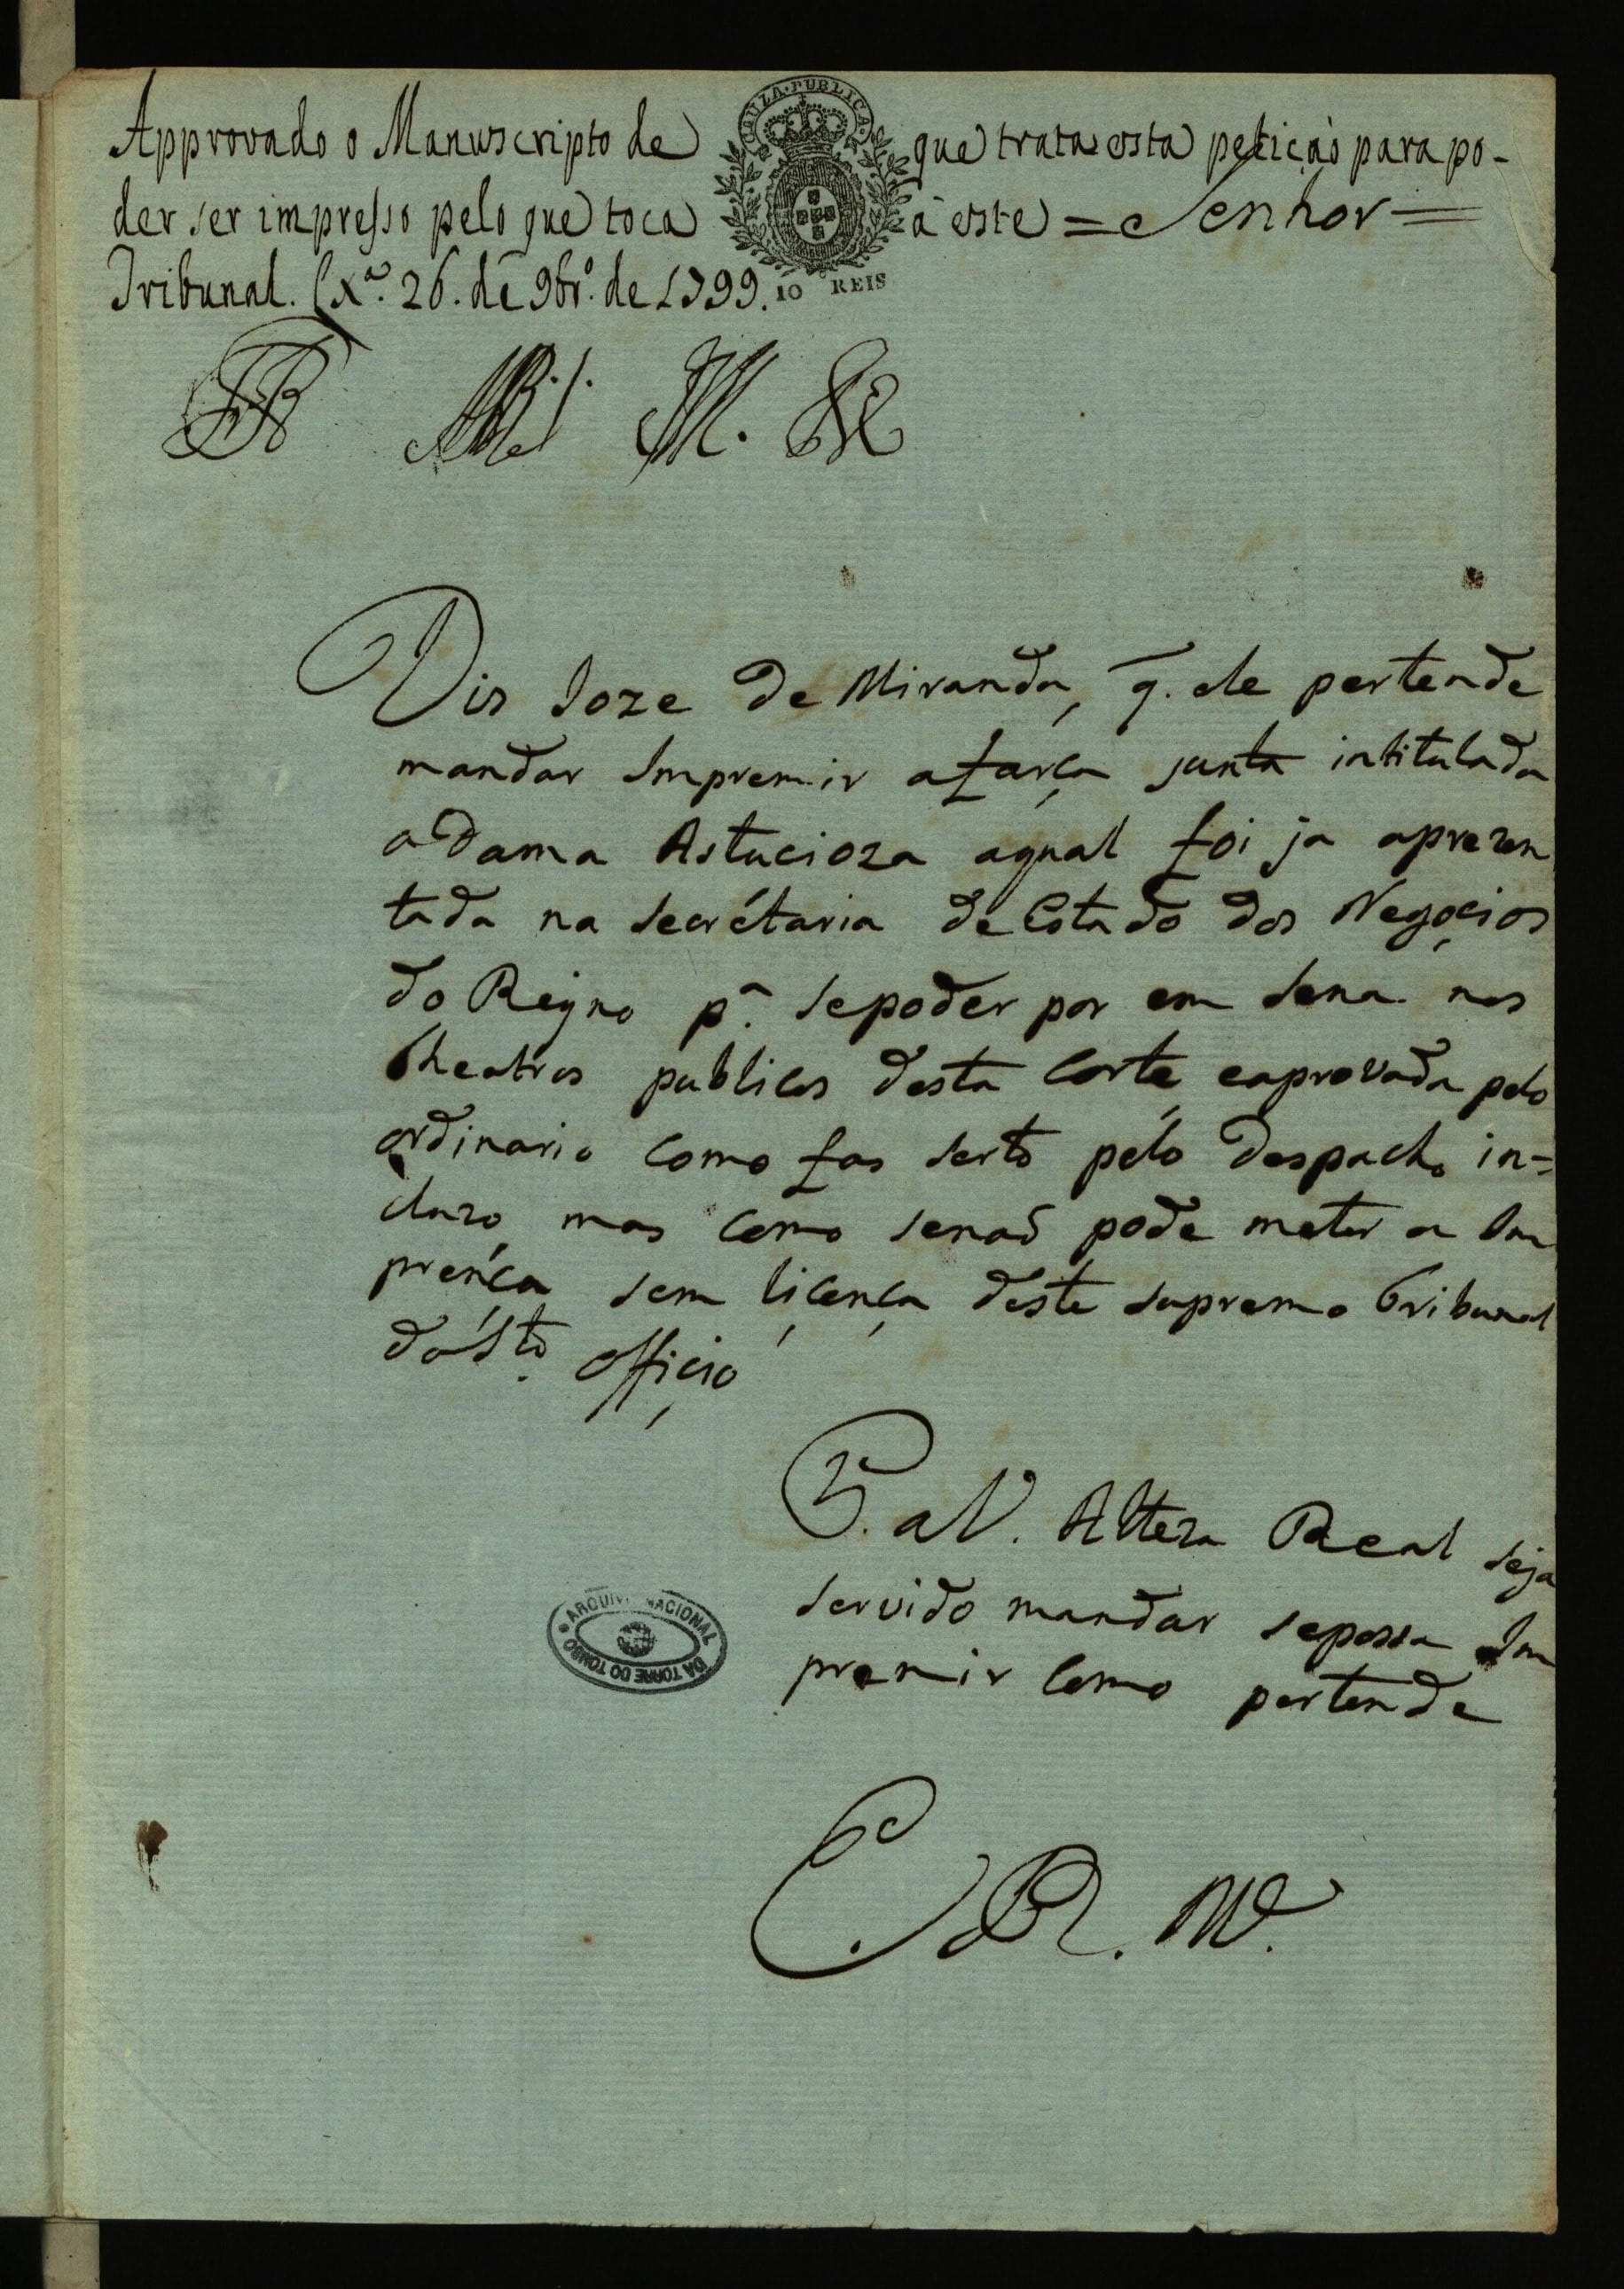 CAUZA.PUBLICA.
Approvado o Manuscripto de que trata esta petição para po-
der ser impresso pelo que toca á este = Senhor =
Tribunal. Lxª. 26. de 9br.º de 1799.
10 REIS
Dis Joze de Miranda, q̃. ele pertende
mandar Impremir a farça junta intitulada
a Dama Astucioza aqual foi ja aprezen
tada na secrétaria de Estado dos Negocios
do Reyno pª. sepoder por em sena nos
theatros publicos desta Corte, eaprovada pelo
ordinario como fas serto pelo despacho in=
cluzo, mas como senaõ pode meter a Im
prença sem licença deste supremo Tribunal
do Sto. officio
P. a V. Alteza Real seja
servido mandar sepossa Im
premir como pertende
E. R. M.
ARQUIVO NACIONAL
DA TORRE DO TOMBO